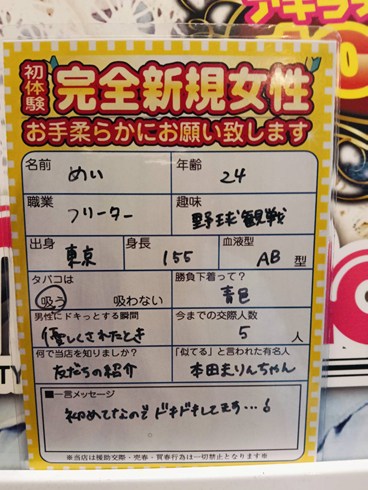 初体験 完全新規女性
お手柔らかにお願い致します
名前 めい 年齢 24
職業 フリーター 趣味 野球観戦
出身 東京 身長 155 血液型 AB 型
タバコは 勝負下着って?
吸う 吸わない 青色
男性にドキっとする瞬間 今までの交際人数
優しくされたとき 5 人
何で当店を知りましたか? 「似てる」と言われた有名人
友だちの紹介 本田まりんちゃん
■一言メッセージ
初めてなのでドキドキしてます…
※当店は援助交際・売春・買春行為は一切禁止となります※
TY